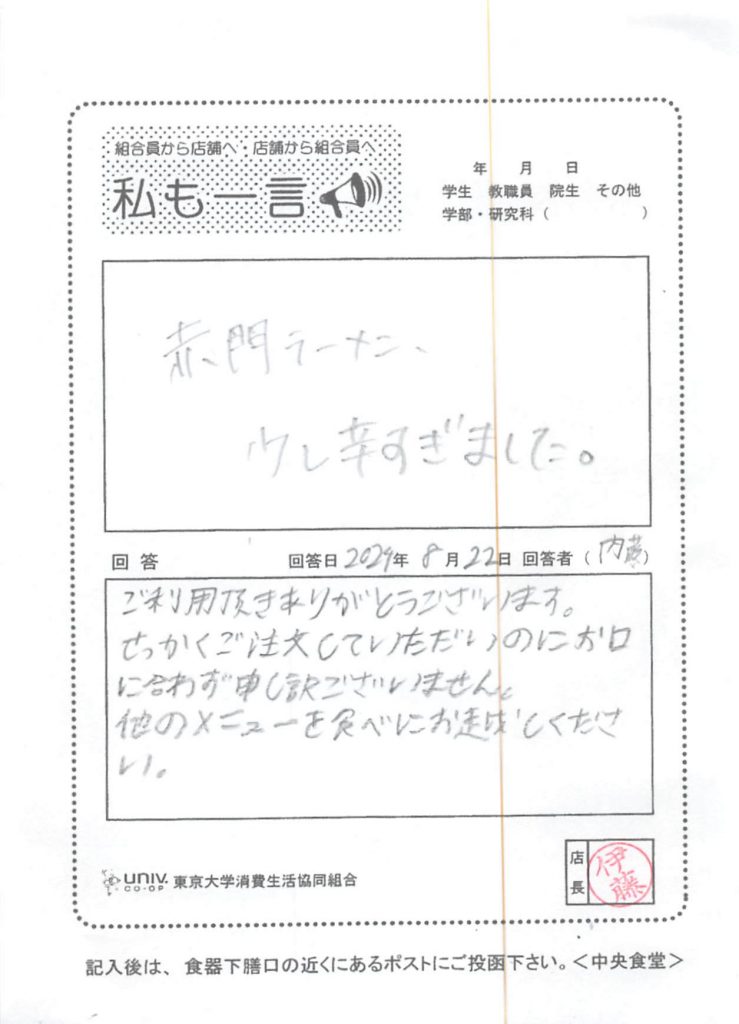 組合員から店舗へ・店舗から組合員へ
私も一言
年 月 日
学生 教職員 院生 その他
学部・研究科（ ）
赤門ラーメン、
少し辛すぎました。
回答 回答日 2024年 8月22日 回答者（内藤）
ご利用頂きありがとうございます。
せっかくご注文していただいのにお口
に合わず申し訳ございません。
他のメニューを食べにお越しくださ
い。
UNIV. CO-OP 東京大学消費生活協同組合
店長 伊藤
記入後は、食器下膳口の近くにあるポストにご投函下さい。＜中央食堂＞